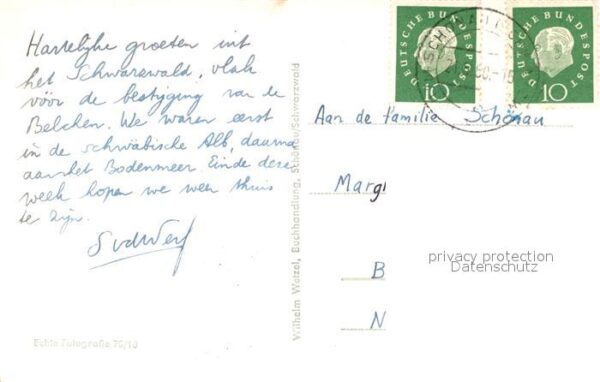 Hartelijke groeten uit
het Schwarzwald, vlak
vóór de bestijging van de
Belchen. We waren eerst
in de schwäbische Alb, daarna
aan het Bodenmeer. Einde deze
week hopen we weer thuis
te zijn.
Echte Fotografie 75/10
Wilhelm Wetzel, Buchhandlung, Schönau/Schwarzwald
DEUTSCHE BUNDESPOST
10
DEUTSCHE BUNDESPOST
10
Aan de familie Schönau
Margl
B
N
privacy protection
Datenschutz